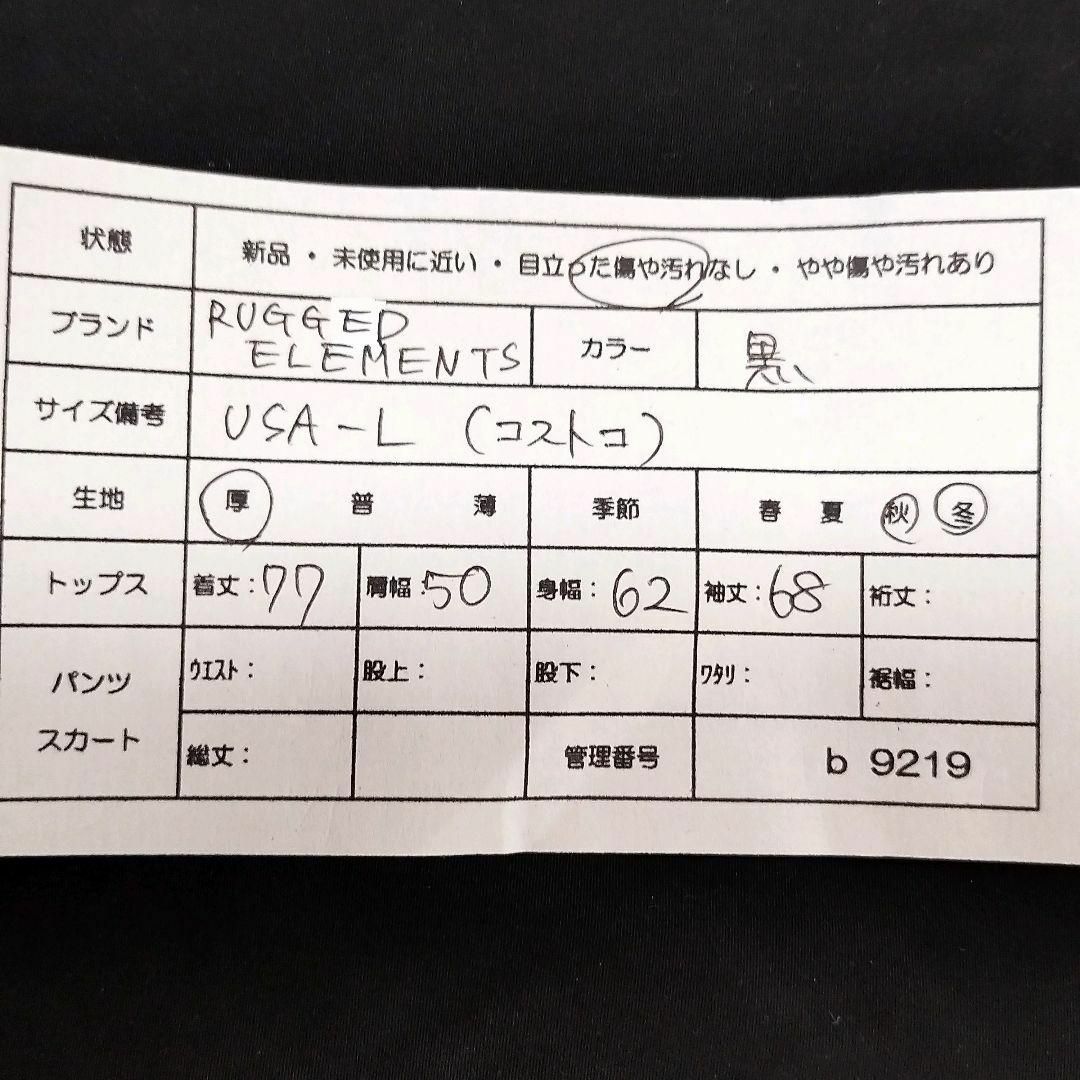 状態 新品・未使用に近い・目立った傷や汚れなし・やや傷や汚れあり
ブランド RUGGED ELEMENTS カラー 黒
サイズ備考 USA-L (コストコ)
生地 厚 普 薄 季節 春 夏 秋 冬
トップス 着丈:77 肩幅:50 身幅:62 袖丈:68 裄丈:
パンツ スカート ウエスト: 股上: 股下: ワタリ: 裾幅:
総丈: 管理番号 b 9219